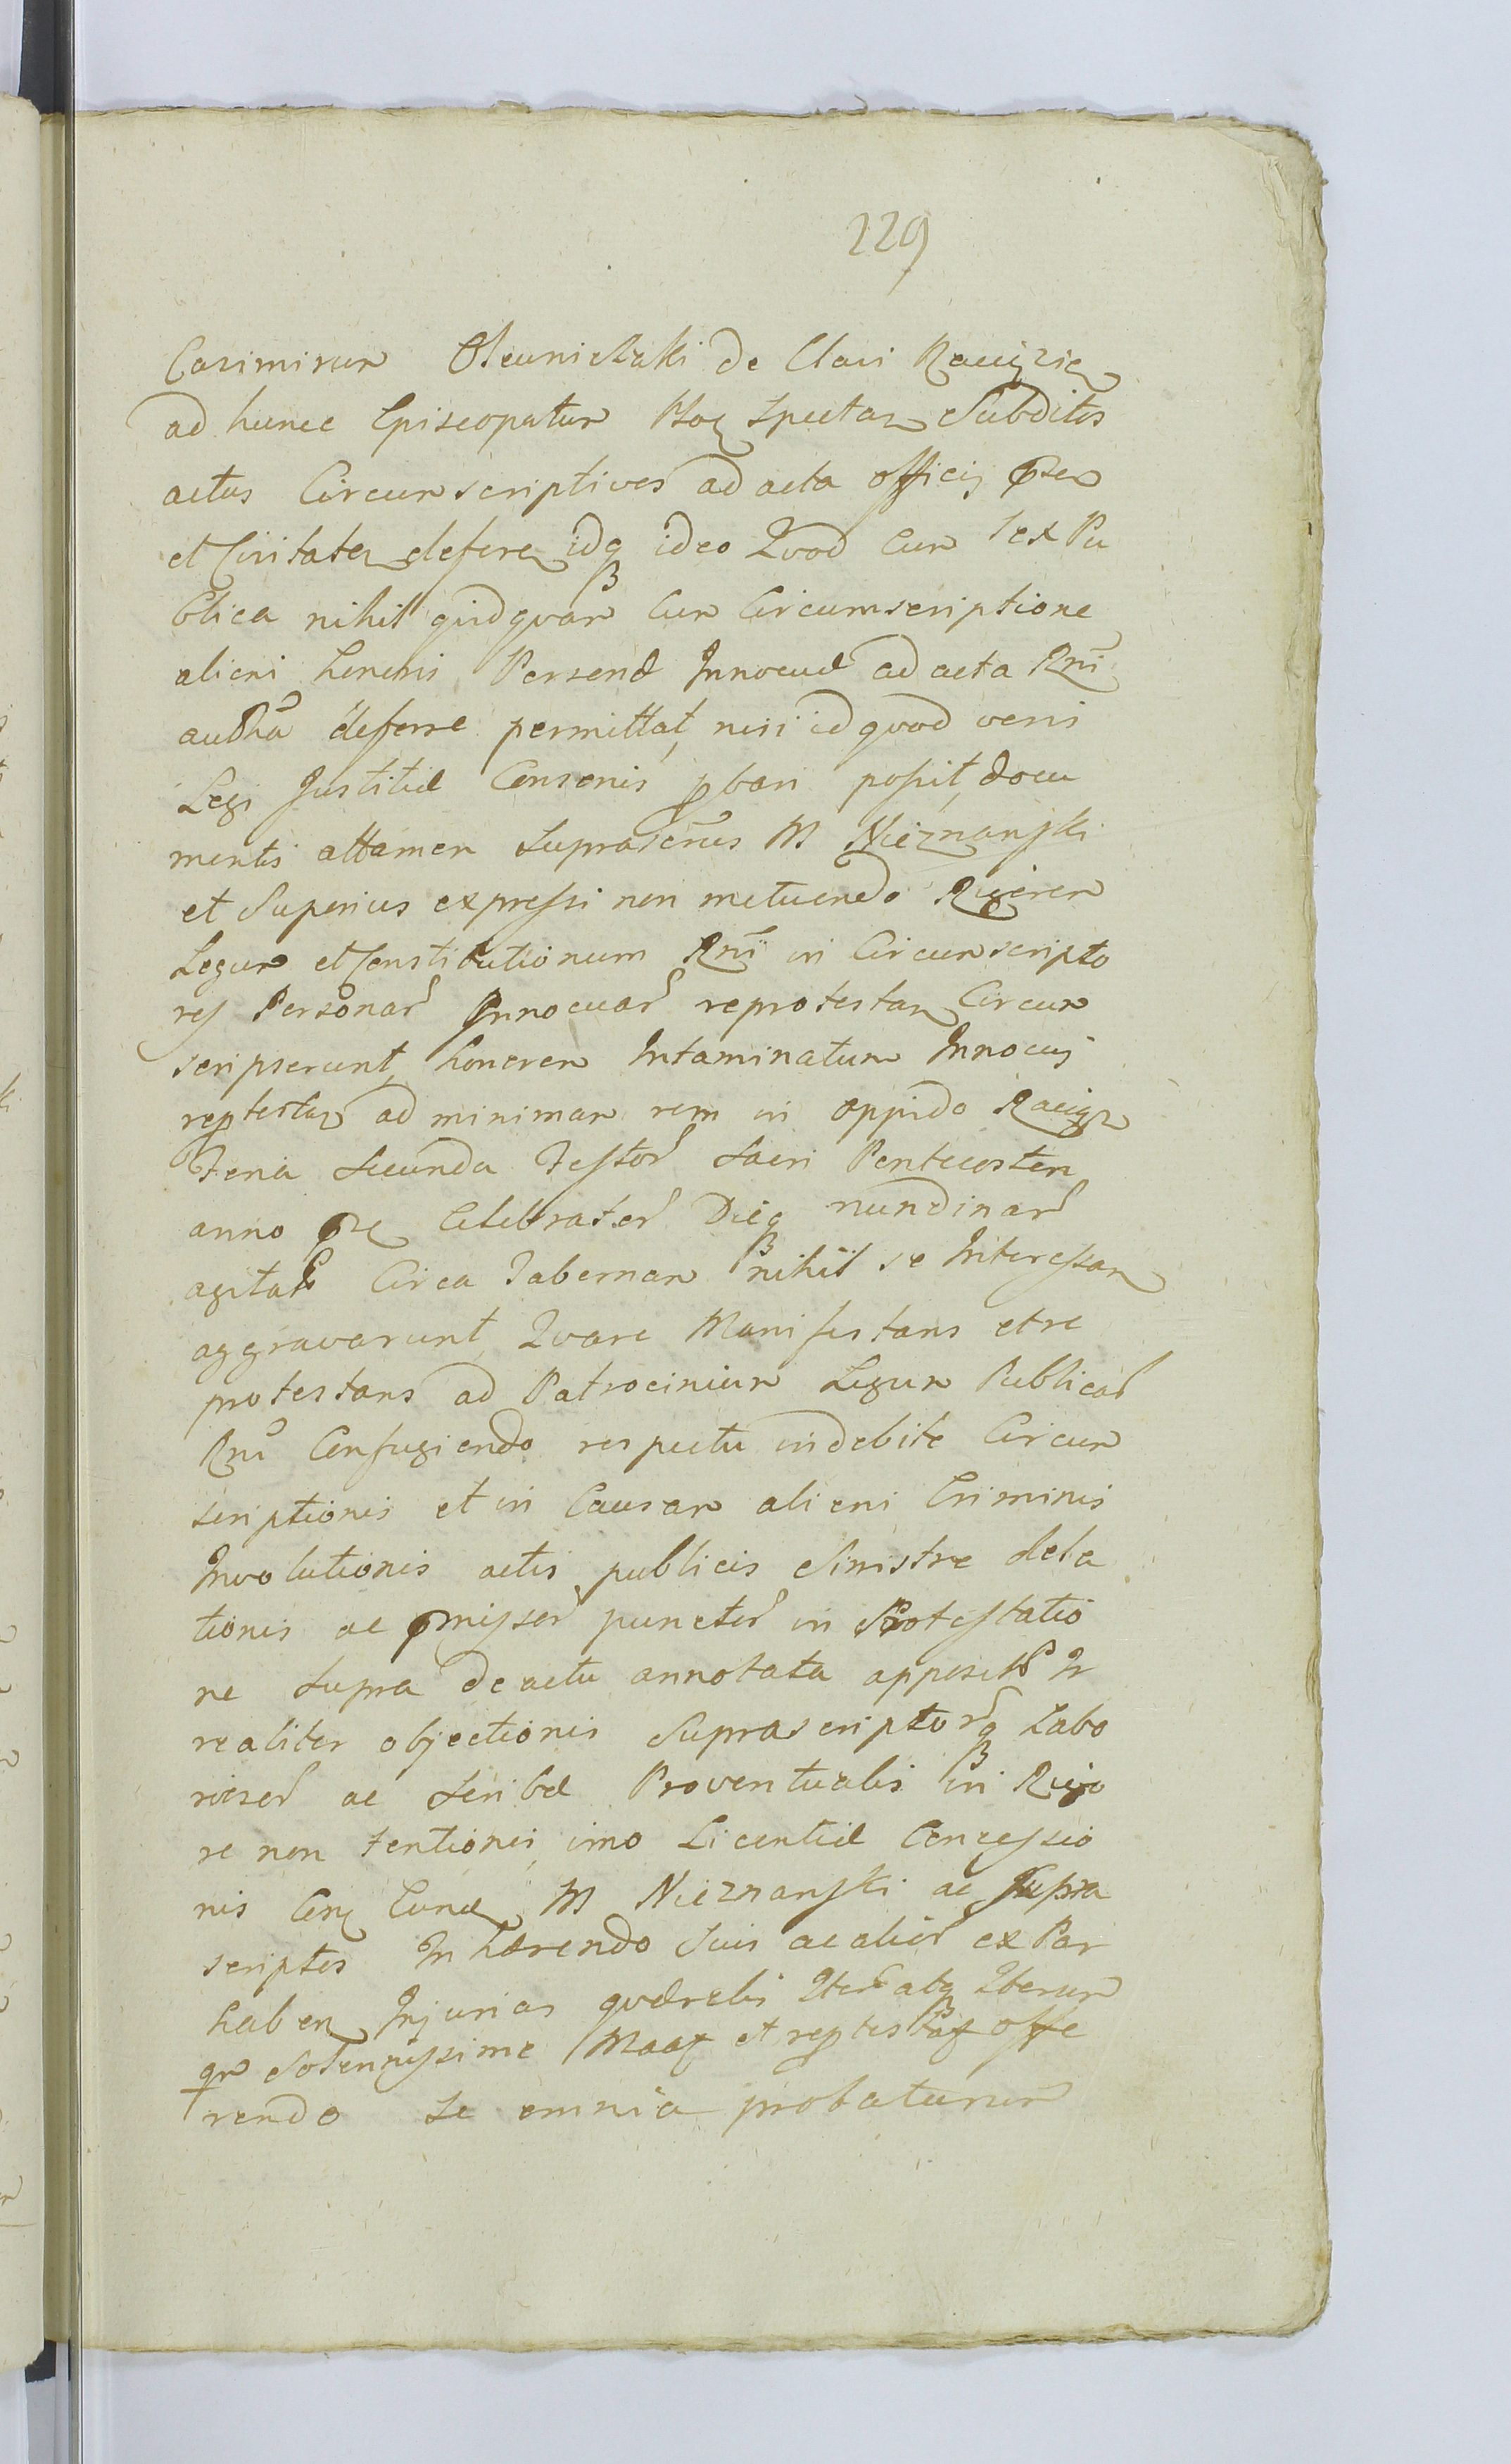 229
Casimirum de Clavi
ad hunc Episcopatum spectan Subditos
actus Circumscriptivos ad acta officii
et Civitaten defere idq ideo Quod Cum Lex Pu
blica nihil quidquam Cum Circumscriptione
alieni honoris Personæ Innocuæ ad acta Rni
deferre permittat, nisi id quod veris
Legi Justitiæ Consonis pbari possit, docu
mentis attamen Suprascrus M Nieznanski
et Superius expressi non metuendo Rigorem
Legum et Constitutionum Rni in Circumscripto
res Personar Innocuar reprotestan Circum
scripserunt, honorem Intaminatum Innocuj
reptestan ad minimam rem in oppido
Feria Secunda Festor Sacri Pentecosten
anno Celebrator Dieq nundinar
agitat Circa Tabernam nihil se Interessan
aggravarunt, Quare Manifestans et re
protestans ad Patrocinium Legum Publicar
Rni Confugiendo respectu indebite Circum
scriptionis et in Causam alieni Criminis
Involutionis actis publicis Sinistre dela
tionis ac pmissor punctor in Protestatio
ne Supra de actu annotata apposit Ir
realiter objectionis Suprascriptorq Labo
riosor ac Scribæ Proventualis in Rigo
re non tentionis, imo Licentiæ Concessio
nis M Nieznanski ac Supra
scriptos Inhærendo Suis ac alior ex Par
haben Injurias quærelis Iter atq Iterum
qm Solennissime et offe
rendo Se omnia probaturum